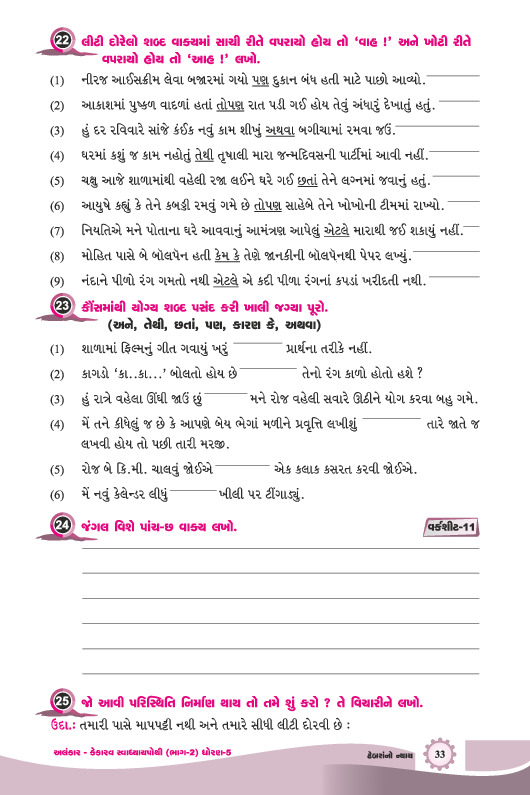 22 લીટી દોરેલો શબ્દ વાક્યમાં સાચી રીતે વપરાયો હોય તો ‘વાહ !’ અને ખોટી રીતે
વપરાયો હોય તો ‘આહ !’ લખો.
(1) નીરજ આઈસક્રીમ લેવા બજારમાં ગયો પણ દુકાન બંધ હતી માટે પાછો આવ્યો.
(2) આકાશમાં પુષ્કળ વાદળાં હતાં તોપણ રાત પડી ગઈ હોય તેવું અંધારું દેખાતું હતું.
(3) હું દર રવિવારે સાંજે કંઈક નવું કામ શીખું અથવા બગીચામાં રમવા જઉં.
(4) ઘરમાં કશું જ કામ નહોતું તેથી તૃષાલી મારા જન્મદિવસની પાર્ટીમાં આવી નહીં.
(5) ચક્ષુ આજે શાળામાંથી વહેલી રજા લઈને ઘરે ગઈ છતાં તેને લગ્નમાં જવાનું હતું.
(6) આયુષે કહ્યું કે તેને કબડ્ડી રમવું ગમે છે તોપણ સાહેબે તેને ખોખોની ટીમમાં રાખ્યો.
(7) નિયતિએ મને પોતાના ઘરે આવવાનું આમંત્રણ આપેલું એટલે મારાથી જઈ શકાયું નહીં.
(8) મોહિત પાસે બે બોલપૅન હતી કેમ કે તેણે જાનકીની બોલપૅનથી પેપર લખ્યું.
(9) નંદાને પીળો રંગ ગમતો નથી એટલે એ કદી પીળા રંગનાં કપડાં ખરીદતી નથી.
23 કૌંસમાંથી યોગ્ય શબ્દ પસંદ કરી ખાલી જગ્યા પૂરો.
(અને, તેથી, છતાં, પણ, કારણ કે, અથવા)
(1) શાળામાં ફિલ્મનું ગીત ગવાયું ખરું ________ પ્રાર્થના તરીકે નહીં.
(2) કાગડો ‘કા..કા...’ બોલતો હોય છે ________ તેનો રંગ કાળો હોતો હશે ?
(3) હું રાત્રે વહેલા ઊંઘી જાઉં છું ________ મને રોજ વહેલી સવારે ઊઠીને યોગ કરવા બહુ ગમે.
(4) મેં તને કીધેલું જ છે કે આપણે બેય ભેગાં મળીને પ્રવૃત્તિ લખીશું ________ તારે જાતે જ
લખવી હોય તો પછી તારી મરજી.
(5) રોજ બે કિ.મી. ચાલવું જોઈએ ________ એક કલાક કસરત કરવી જોઈએ.
(6) મેં નવું કેલેન્ડર લીધું ________ ખીલી પર ટીંગાડ્યું.
24 જંગલ વિશે પાંચ-છ વાક્ય લખો. વર્કશીટ-11
25 જો આવી પરિસ્થિતિ નિર્માણ થાય તો તમે શું કરો ? તે વિચારીને લખો.
ઉદા.: તમારી પાસે માપપટ્ટી નથી અને તમારે સીધી લીટી દોરવી છે :
અલંકાર - કેકારવ સ્વાધ્યાયપોથી (ભાગ-2) ધોરણ-5 ઢેબરાંનો ન્યાય 33